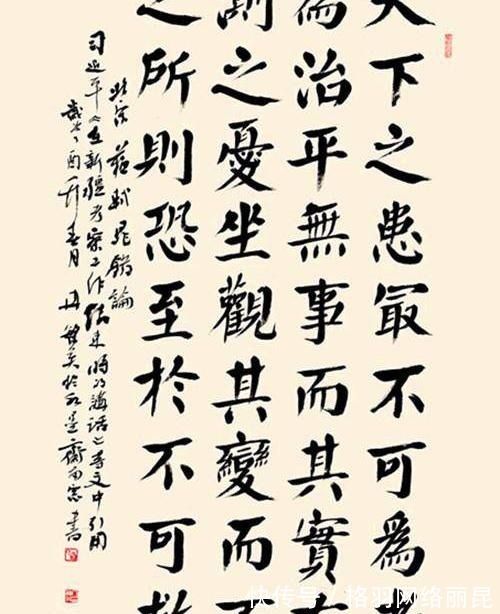 天下之患冣不可為
為治平無事而其實
測之憂坐觀其變而
之所則恐至於不可救
北宋 蘇軾 晁錯論
习近平《在新疆考察工作结束時的講話》等文中引用
歲次丁酉年春月
書
快传号 / 格羽网络丽昆